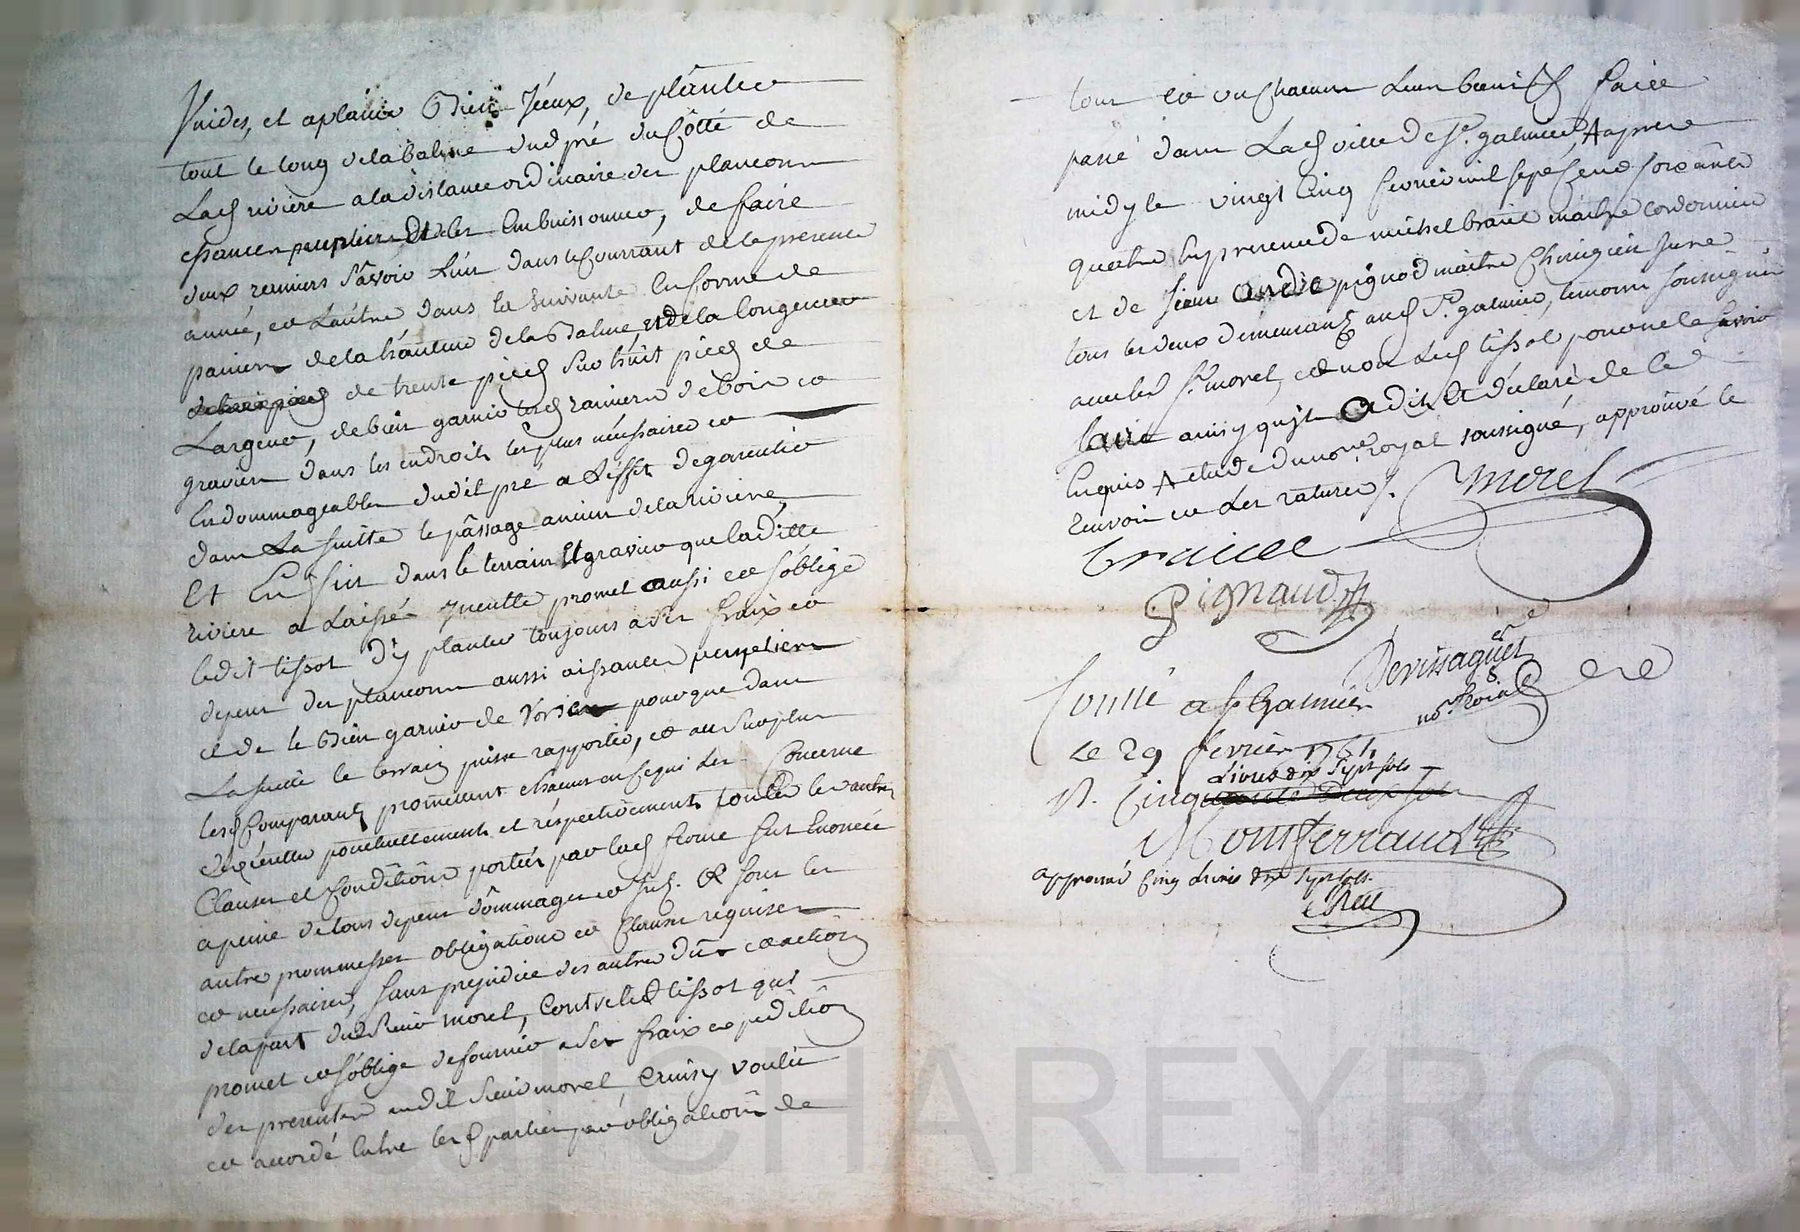 Vuides, et aplanir Bien Jceux, de planter
tout le long dela Balme dud pré du Côtté de
Lad riviere a la distance ordinaire des plancons
chancer peupliers Et les Embuissonner, de faire
deux reuniers Sávoir Lún dans le Courrant de la presente
année, et Láutre dans la Suivante En forme de
paniers de la háuteur de la Balme, et de la longeueur
de trente pieds Sur huit pieds de
Largeur, de bien garnir lesd raniers de bois et
gravier dans les endroits les plus nécessaires et
Endommageables dudit pré a Léffet de garentir
dans La Suitte le pássage ancien de la riviere,
Et Enfin dans le terrain Et gravier que la Ditte
riviere a Laissé Jneulte promet aussi et sóblige
ledit tissot D'y planter toujours a ses fraix et
depens des plancons aussi aissances peupliers
et de le Bien garnir de Vorses pour que dans
La Suite le terrain puisse rapporter, et au Surplus
lesd Comparants promettent chacun en se qui les Concerne
dexécuter ponctuellement et réspectivement toutes les autres
Clauses et Conditions portées par lad ferme Sus Enoncée
a peine de tous depens dommages et Jnt. Et sous les
autre prommesses obligations et Clauses requises
et necessaires, sans prejudice des autres dûs et actions
de la part dud Sieur morel, Contre led tissot qui
promet et sóblige de fournir a ses fraix expedition
des presentes audit Sieur morel, Crainsy voulu
et accordé Entre les d parties par obligations de
tous et un chacuns Leurs biens Et Fait
passé dans Lad ville de St. galmier, Aapres
midy le vingt Cinq fevrier mil sept Cent soixante
quatre En presence de michel braile maitre Cordonnier
et de sieur andré pignod maitre Chirugien Juré
tous les deux demeurants aud St. galmier, temoins soussignés
avec led Sr. morel, et non Led tissot pour ne le Savoir
faire ainsy qu'jl a dit Et déclaré de ce
Enquis A etude du notre royal soussigné, approuvé le
renvoi et les ratures /. Morel
braille
Pignaud
Devissaguet
nore Roial
Contlé a St Galmier
Le 29 fevrier 1764
Livres dix Sept sols
R. Cinquante
Montferrand
approuvé Cinq Livres dix Sept sols
CHAREYRON